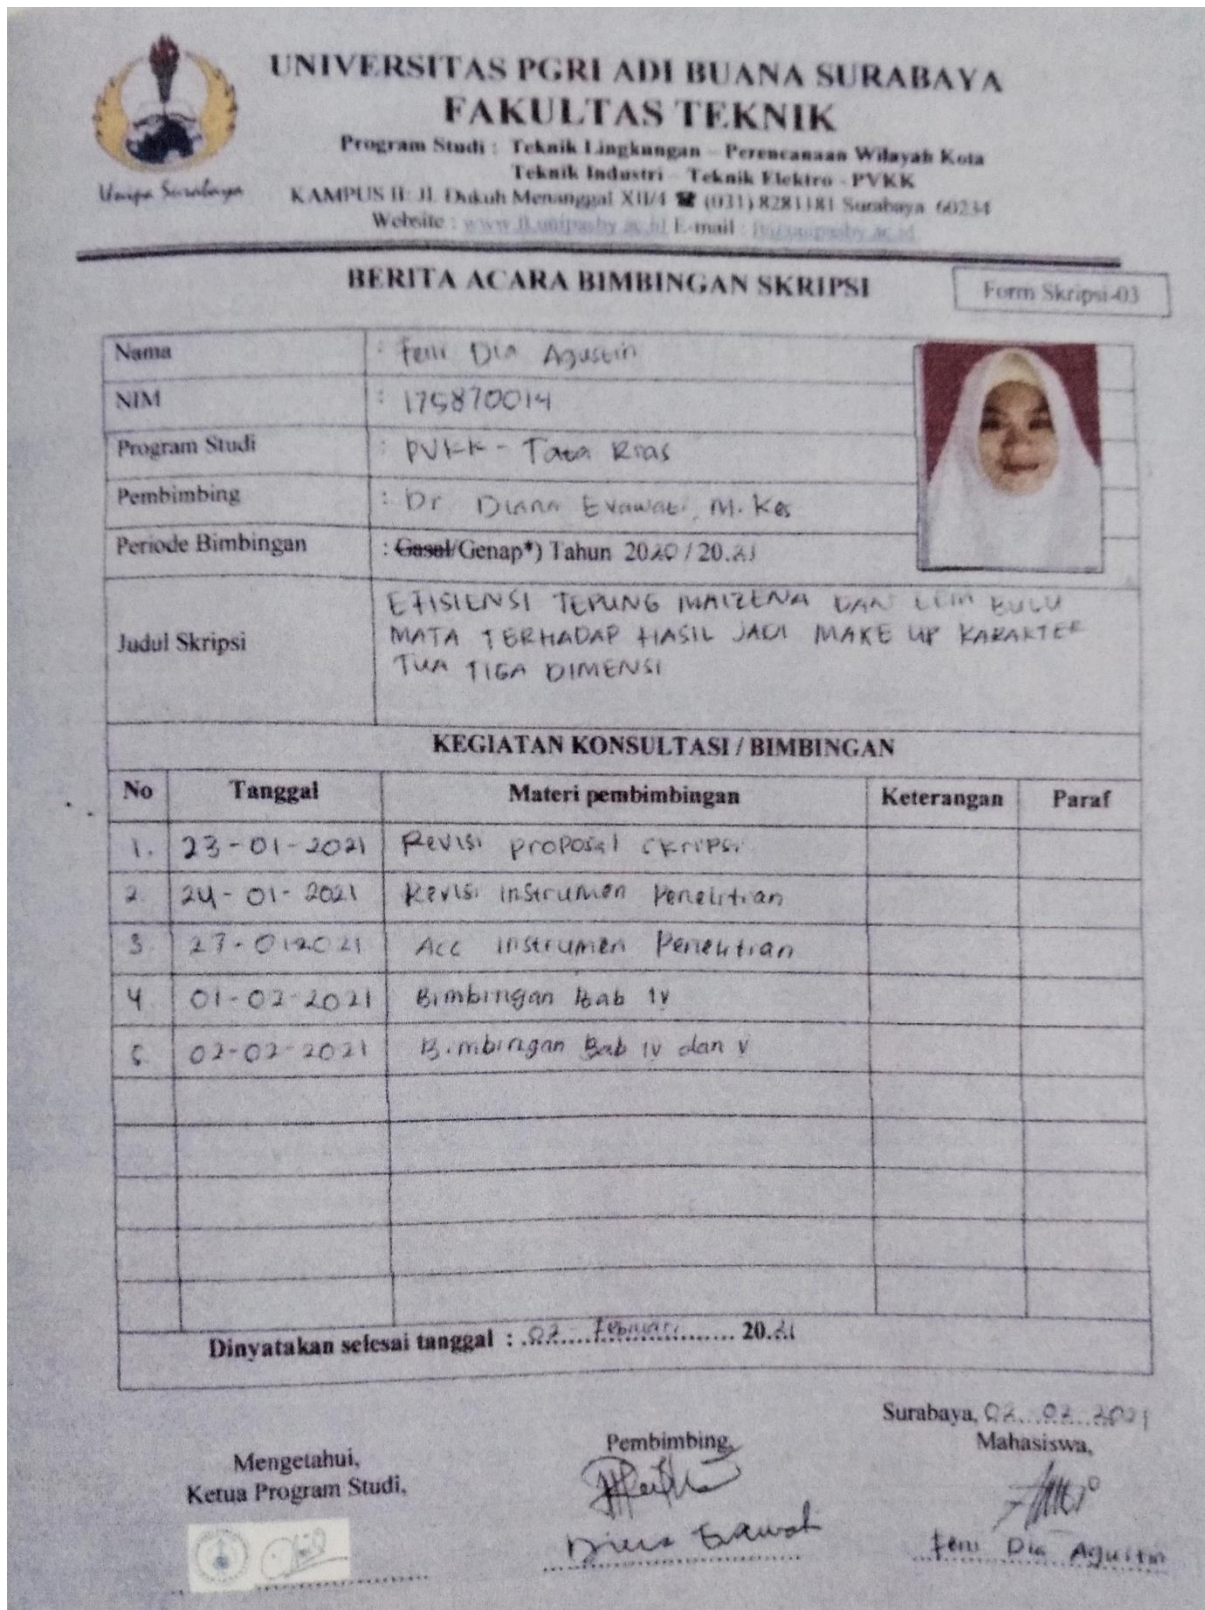 UNIVERSITAS PGRI ADI BUANA SURABAYA
FAKULTAS TEKNIK
Program Studi : Teknik Lingkungan - Perencanaan Wilayah Kota
Teknik Industri - Teknik Elektro - PVKK
Unipa Surabaya
KAMPUS II: Jl. Dukuh Menanggal XII/4 ☎ (031) 8281181 Surabaya 60234
Website : www.ft.unipasby.ac.id E-mail :
BERITA ACARA BIMBINGAN SKRIPSI
Form Skripsi-03
Nama : Feni Dia Agustin
NIM : 175870014
Program Studi : PVKK - Tata Rias
Pembimbing : Dr Diana Evawati, M. Kes
Periode Bimbingan : Gasal/Genap*) Tahun 2020 / 20.21
Judul Skripsi
EFISIENSI TEPUNG MAIZENA DAN LEM BULU
MATA TERHADAP HASIL JADI MAKE UP KARAKTER
TUA TIGA DIMENSI
KEGIATAN KONSULTASI / BIMBINGAN
No Tanggal Materi pembimbingan Keterangan Paraf
1. 23-01-2021 Revisi proposal skripsi
2. 24-01-2021 Revisi instrumen Penelitian
3. 27-012021 Acc instrumen Penelitian
4. 01-02-2021 Bimbingan Bab IV
5. 02-02-2021 Bimbingan Bab IV dan V
Dinyatakan selesai tanggal : 02 Februari 20.21
Surabaya, 02. 02. 2021
Mengetahui, Pembimbing, Mahasiswa,
Ketua Program Studi,
Diana Evawati Feni Dia Agustin